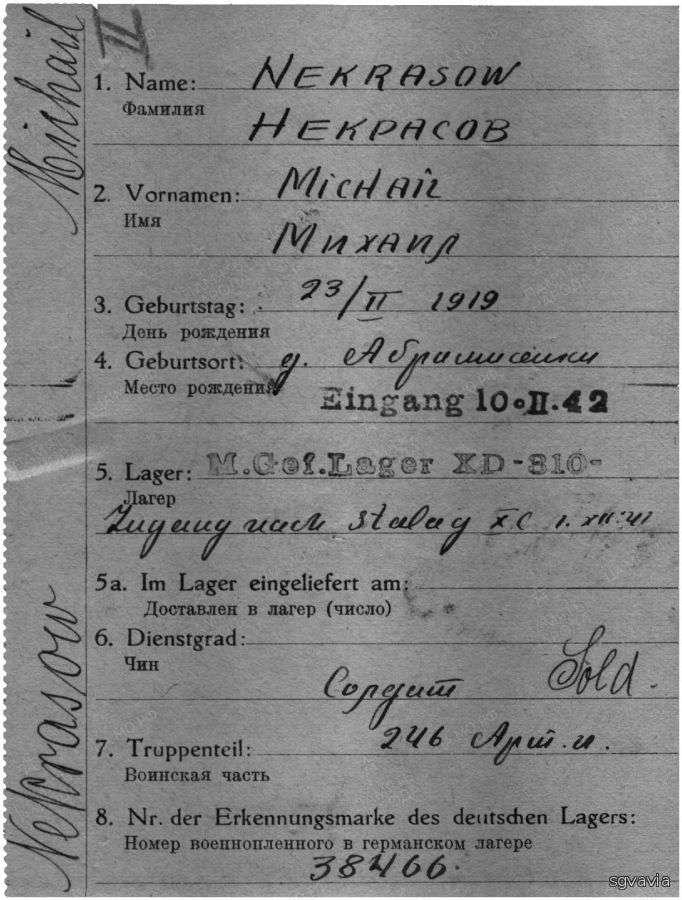 Michail
Nekrasow
II
1. Name: NEKRASOW
Фамилия
НЕКРАСОВ
2. Vornamen: MICHAIL
Имя
МИХАИЛ
3. Geburtstag: 23/II 1919
День рождения
4. Geburtsort: д.
Место рождения
Eingang 10.II.42
5. Lager: M.Gef.Lager XD-310-
Лагер
Zugang nach Stalag XC 1.XII.41
5a. Im Lager eingeliefert am:
Доставлен в лагер (число)
6. Dienstgrad:
Чин
Солдат Sold.
7. Truppenteil: 246 Арт. п.
Воинская часть
8. Nr. der Erkennungsmarke des deutschen Lagers:
Номер военнопленного в германском лагере
38466.
sgvavia